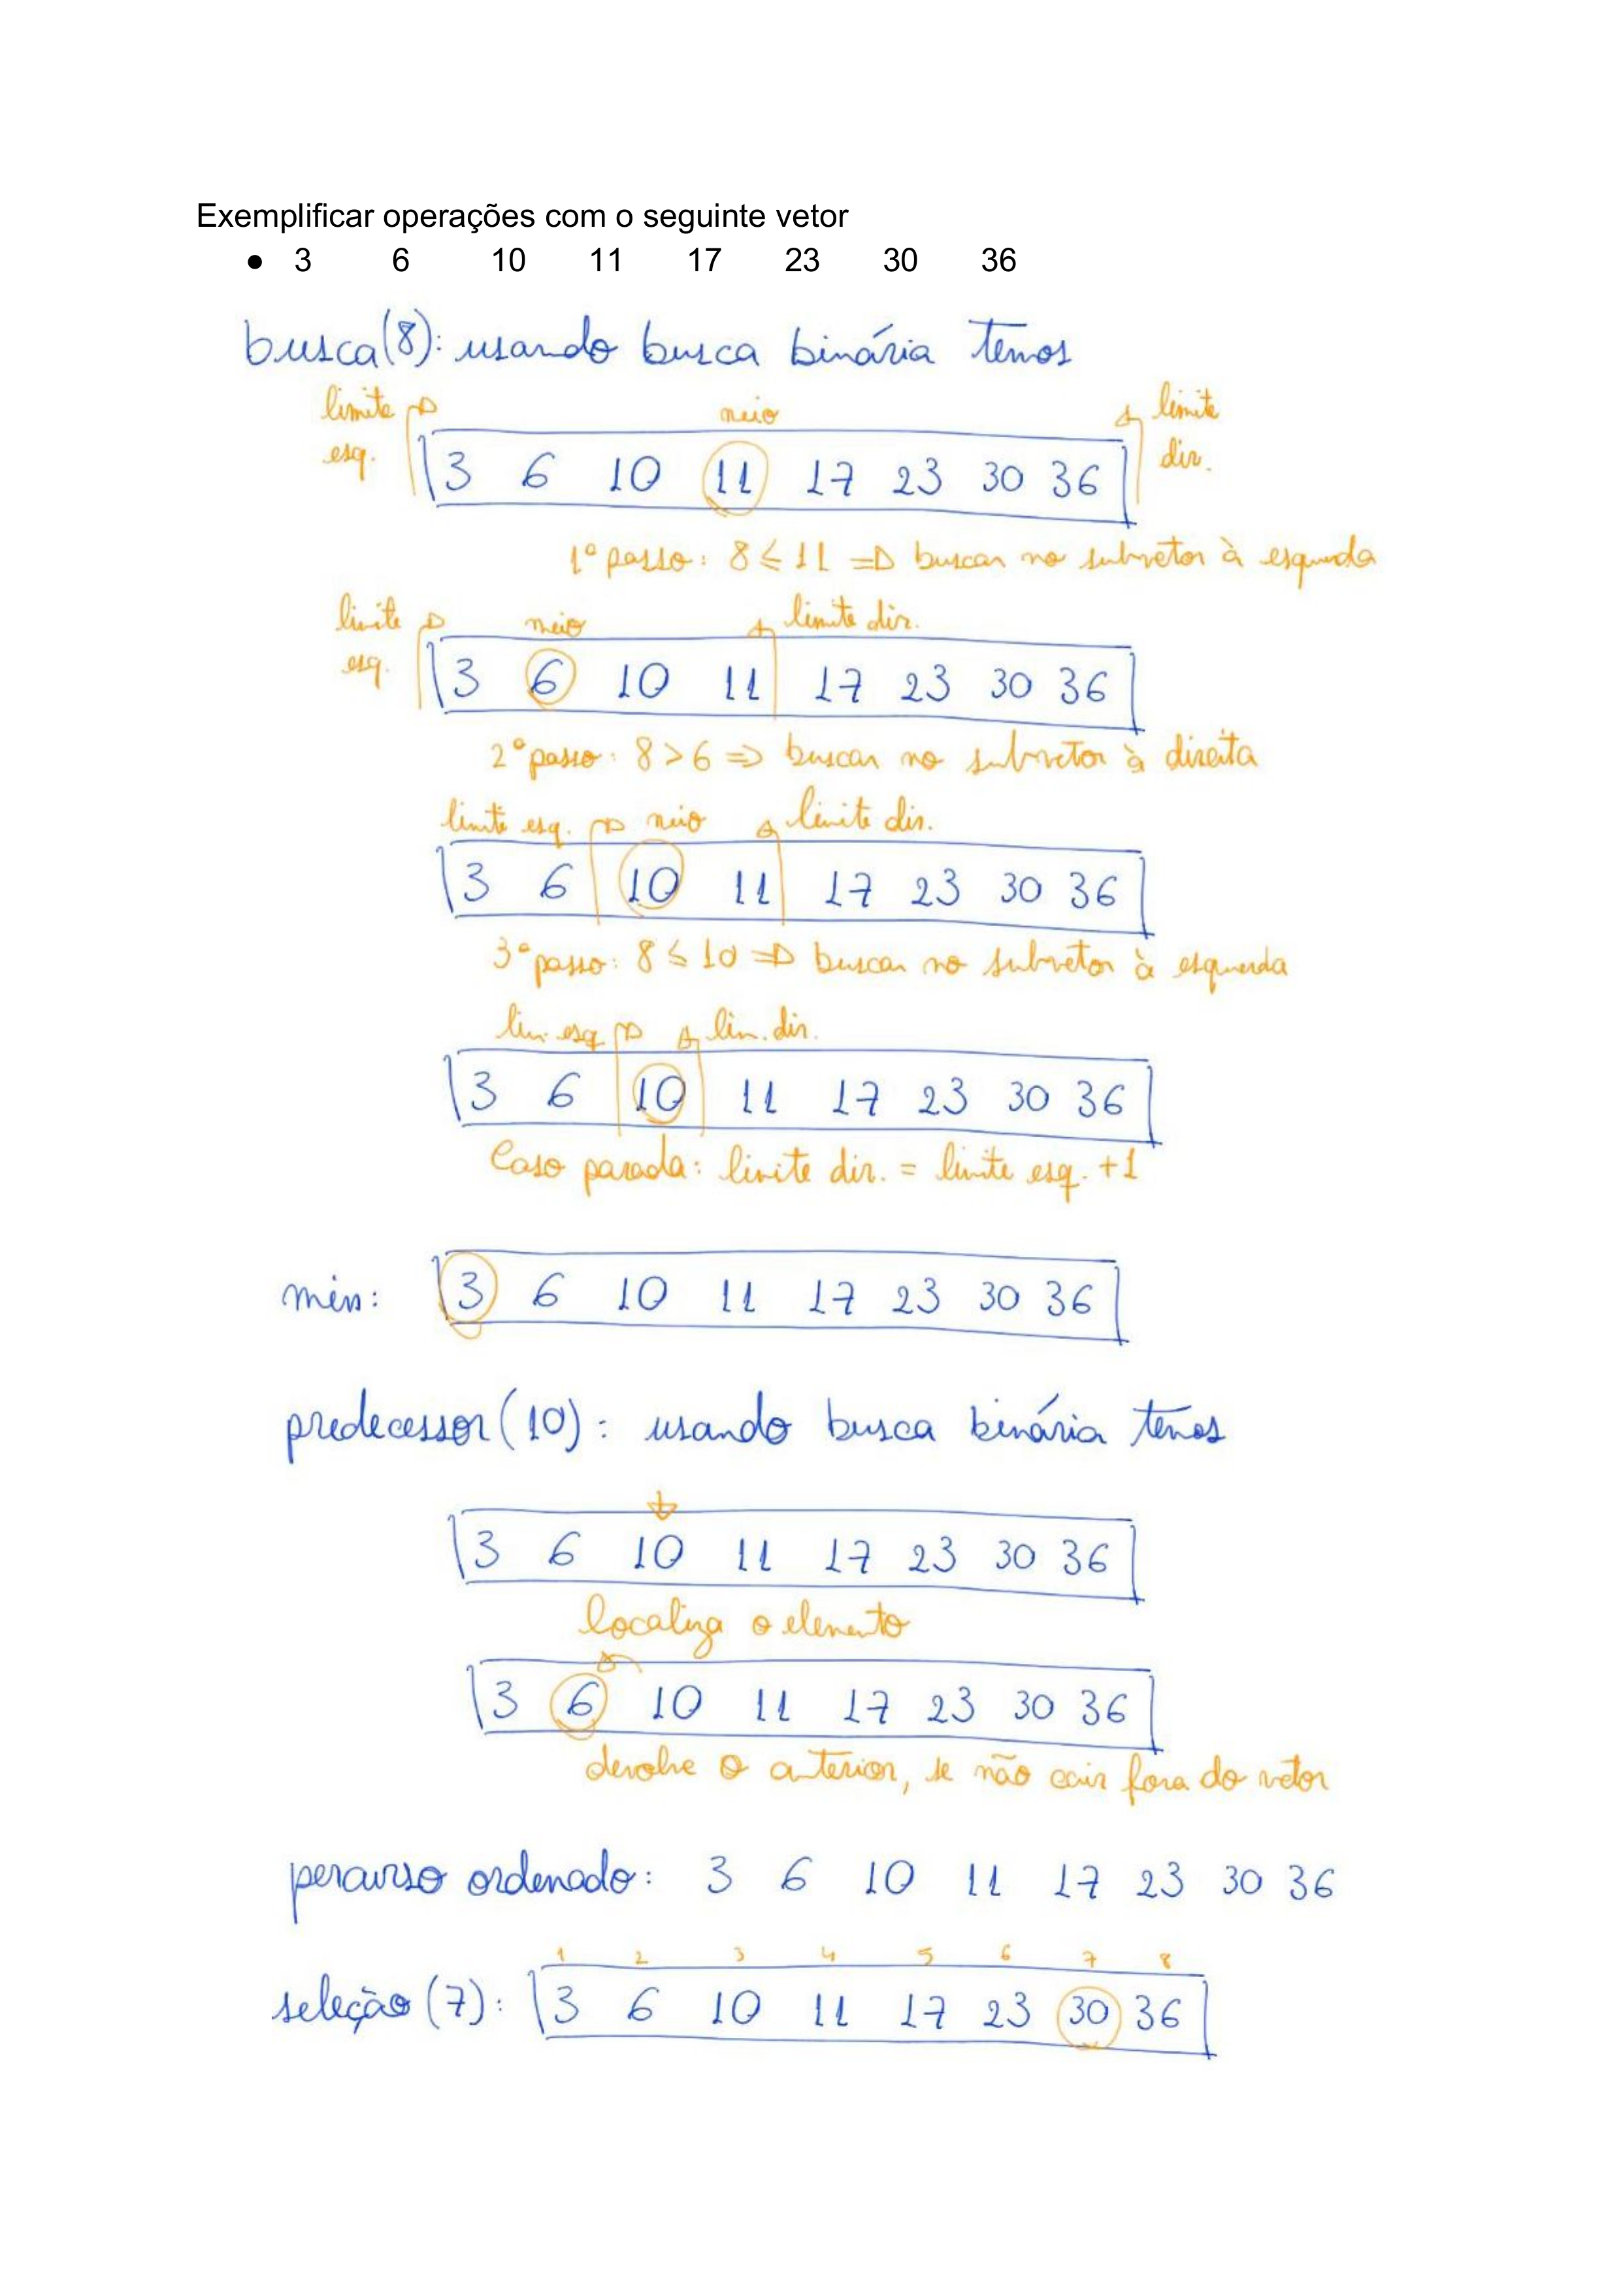 Exemplificar operações com o seguinte vetor
● 3 6 10 11 17 23 30 36
busca(8): usando busca binária temos
limite esq. meio limite dir.
3 6 10 11 17 23 30 36
1º passo: 8 ≤ 11 => buscar no subvetor à esquerda
limite esq. meio limite dir.
3 6 10 11 17 23 30 36
2º passo: 8 > 6 => buscar no subvetor à direita
limite esq. meio limite dir.
3 6 10 11 17 23 30 36
3º passo: 8 ≤ 10 => buscar no subvetor à esquerda
lim. esq lim. dir.
3 6 10 11 17 23 30 36
Caso parada: limite dir. = limite esq. +1
min: 3 6 10 11 17 23 30 36
predecessor(10): usando busca binária temos
3 6 10 11 17 23 30 36
localiza o elemento
3 6 10 11 17 23 30 36
devolve o anterior, se não cair fora do vetor
percurso ordenado: 3 6 10 11 17 23 30 36
1 2 3 4 5 6 7 8
seleção (7): 3 6 10 11 17 23 30 36